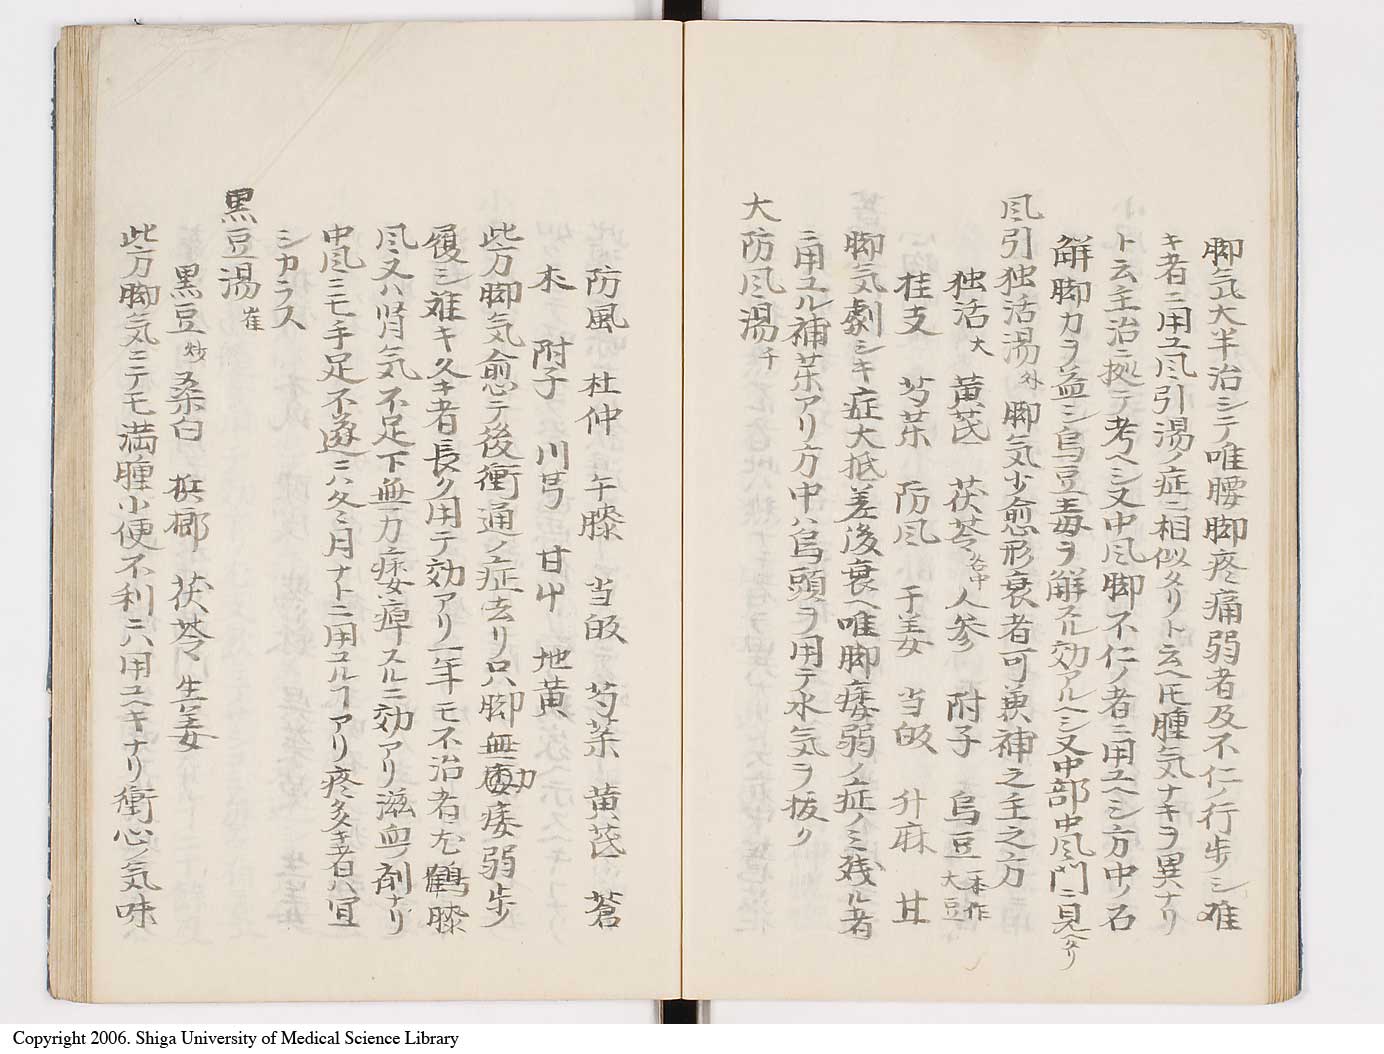 脚気大半治シテ唯腰脚疼痛弱者及不仁ノ行歩シ难
キ者ニ用ユ风引湯ノ症ニ相似タリト云ヘ𪜈腫気ナキヲ異ナリ
ト云主治ニ拠テ考ヘシ又中风脚不仁ノ者ニ用ユヘシ方中ノ石
解脚力ヲ益シ烏豆毒ヲ解スル効アルヘシ又中部中风門ニ見ヘタリ
风引独活湯外 脚気少愈形衰者可兼神之主之方
独活大 黄芪 茯苓各中 人参 附子 烏豆一本作大豆
桂支 芍薬 防风 干姜 当皈 升麻 甘
脚気劇シキ症大抵差後衰ヘ唯脚痿弱ノ症ノミ残ル者
ニ用ユル補薬アリ方中ハ烏頭ヲ用テ水気ヲ抜ク
大防风湯千
防風 杜仲 午膝 当皈 芍薬 黄芪 蒼
朮 附子 川芎 甘艸 地黄
此方脚気愈テ後衝通ノ症去リ只脚無力痿弱歩
履シ难キ久キ者長ク用テ効アリ一年モ不治者尤鶴膝
风又ハ肾気不足下無力痿痺スルニ効アリ滋血ノ剤ナリ
中风ニモ手足不遂ニハ冬月ナトニ用ユルヿアリ疼多キ者ハ宜
シカラス
黒豆湯崔
黒豆炒 桑白 梹榔 茯苓 生姜
此方脚気ニテモ満腫小便不利ニハ用ユヘキナリ衝心ノ気味
Copyright 2006. Shiga University of Medical Science Library